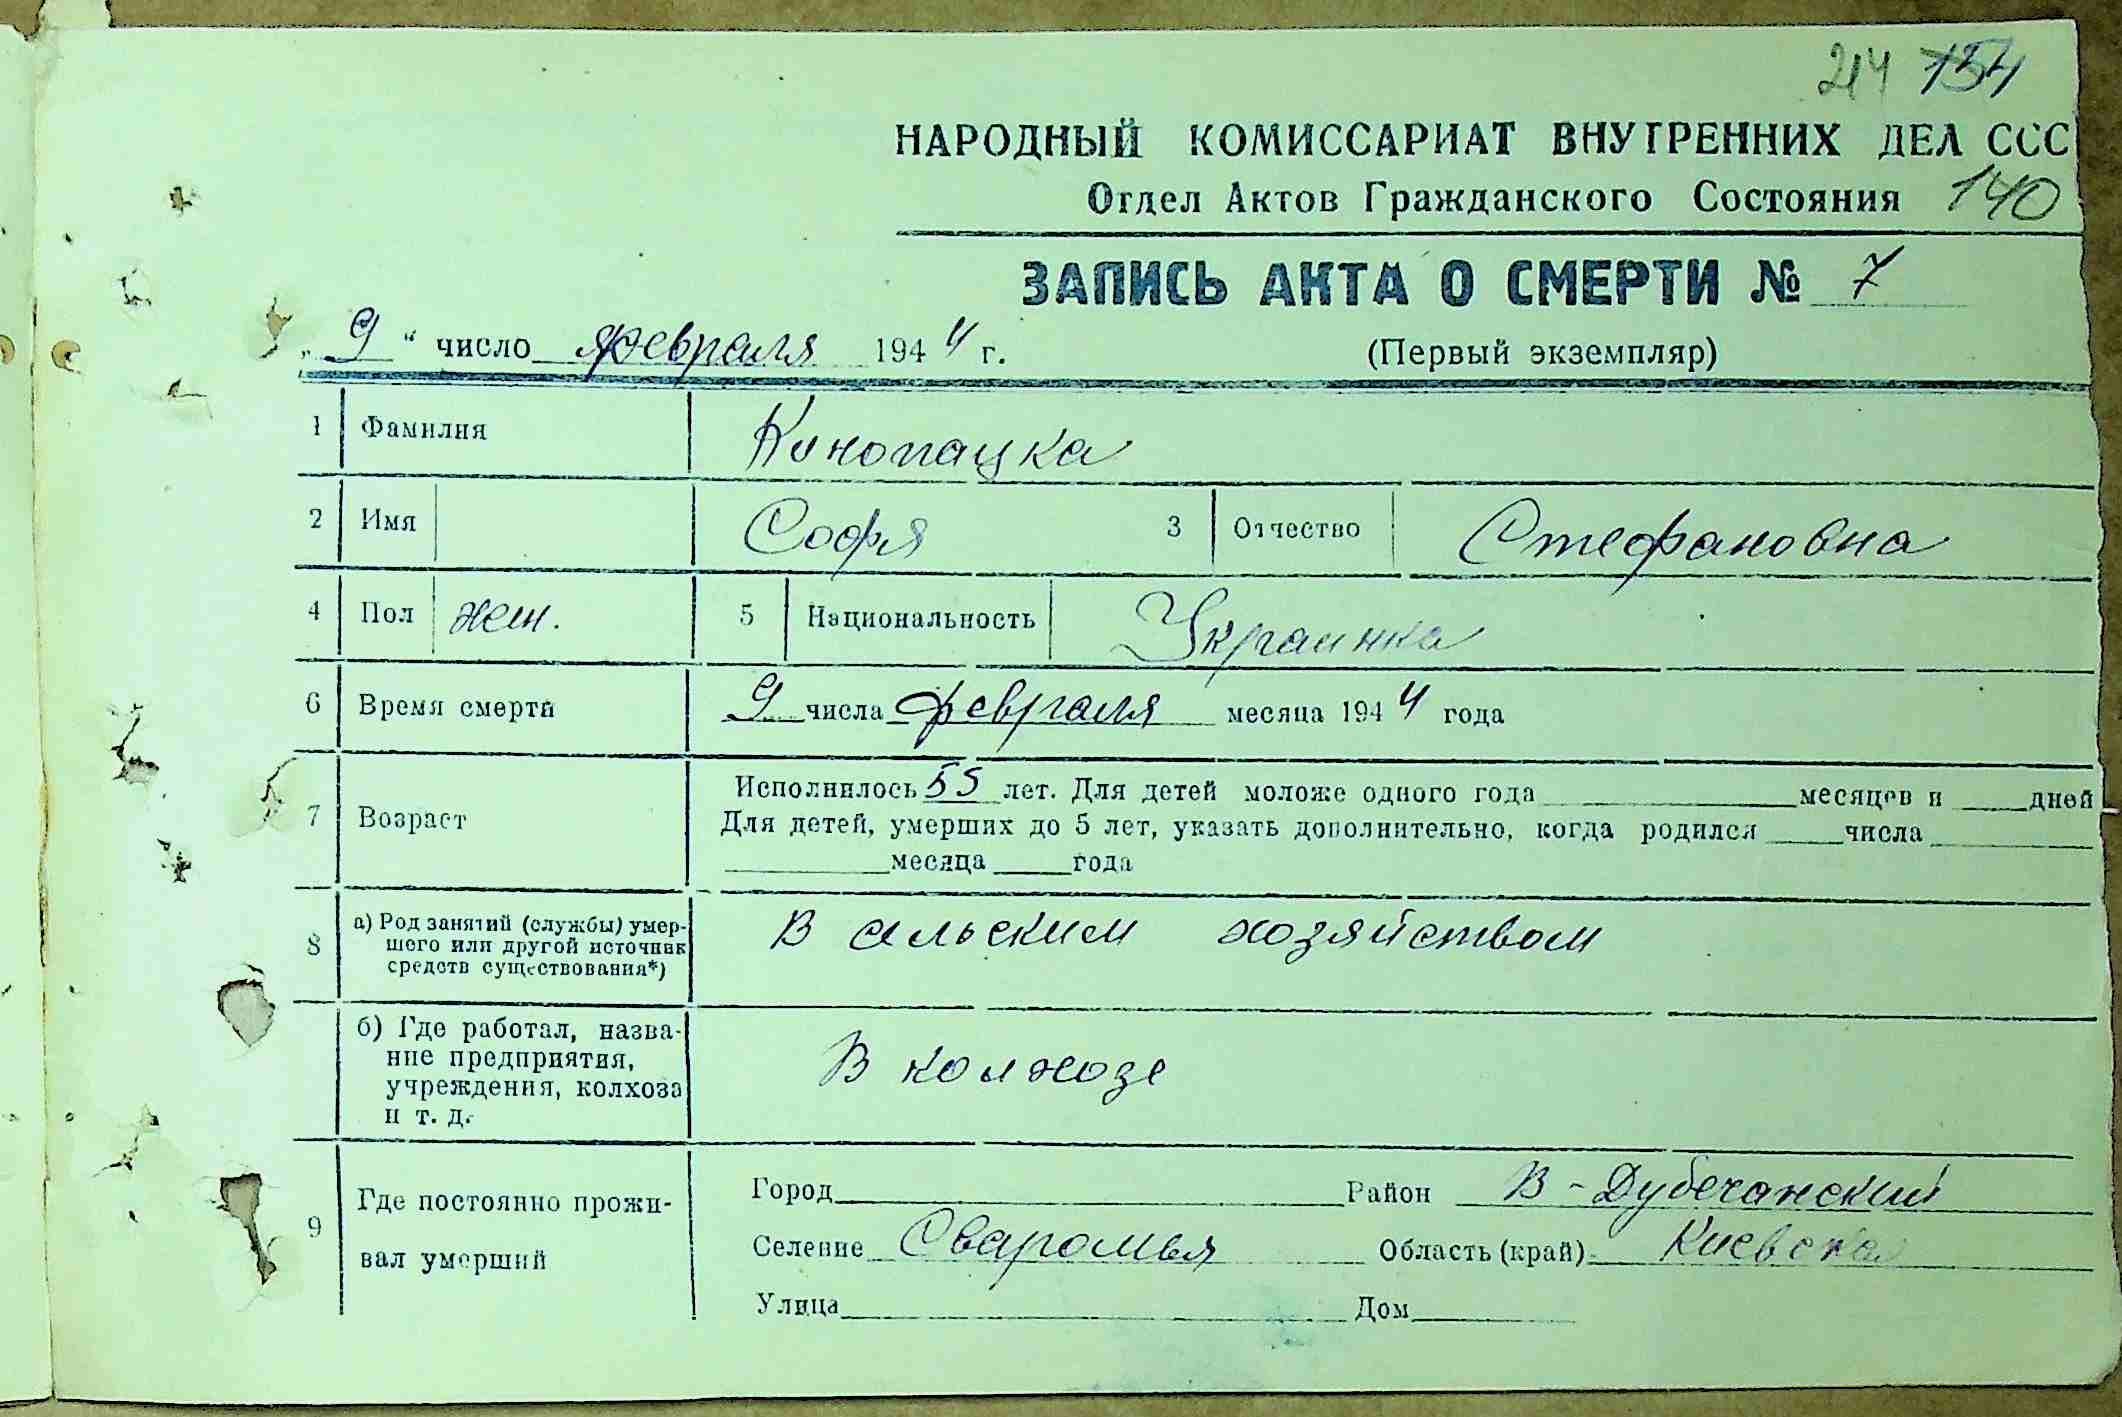 214 154
НАРОДНЫЙ КОМИССАРИАТ ВНУТРЕННИХ ДЕЛ ССС
Отдел Актов Гражданского Состояния 140
ЗАПИСЬ АКТА О СМЕРТИ № 7
„ 9 “ число февраля 1944 г. (Первый экземпляр)
1 Фамилия Кинопацка
2 Имя Софя 3 Отчество Стефановна
4 Пол жен. 5 Национальность Украинка
6 Время смерти 9 числа февраля месяца 1944 года
7 Возраст Исполнилось 55 лет. Для детей моложе одного года месяцев и дней
Для детей, умерших до 5 лет, указать дополнительно, когда родился числа
месяца года
8 а) Род занятий (службы) умер-
шего или другой источник
средств существования*)
В сельским хозяйством
б) Где работал, назва-
ние предприятия,
учреждения, колхоза
и т. д.
В колхозе
9 Где постоянно прожи-
вал умерший
Город Район В-Дубечанский
Селение Сваромья Область (край) Киевская
Улица Дом